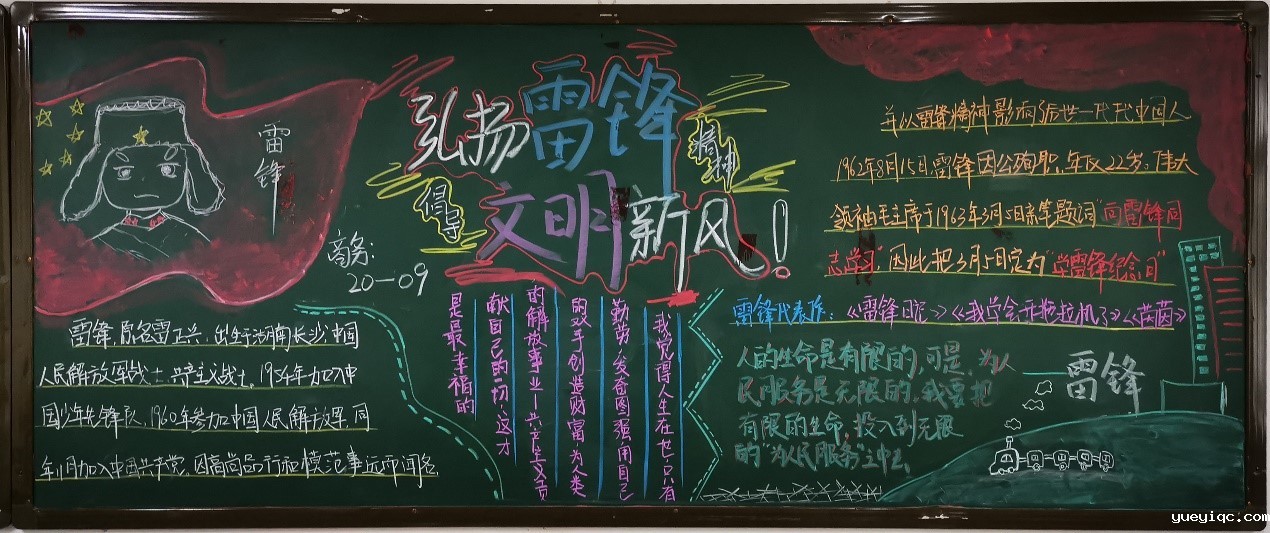 弘扬雷锋
精神
倡导
文明新风！
雷锋
商务：
20-09
雷锋，原名雷正兴，出生于湖南长沙，中国
人民解放军战士，共产主义战士，1954年加入中
国少年先锋队，1960年参加中国人民解放军，同
年11月加入中国共产党，因高尚品行和模范事迹而闻名
我觉得人生在世，只有
勤劳，发奋图强，用自己
的双手创造财富，为人类
的解放事业—共产主义贡
献自己的一切，这才
是最幸福的
并以雷锋精神影响后世一代代中国人
1962年8月15日，雷锋因公殉职，年仅22岁。伟大
领袖毛主席于1963年3月5日亲笔题词"向雷锋同
志学习"因此把3月5日定为"学雷锋纪念日"
雷锋代表作：《雷锋日记》《我学会开拖拉机了》《茵茵》
人的生命是有限的，可是，为人
民服务是无限的，我要把
有限的生命，投入到无限
的"为人民服务"之中去
雷锋
yueyiqc.com